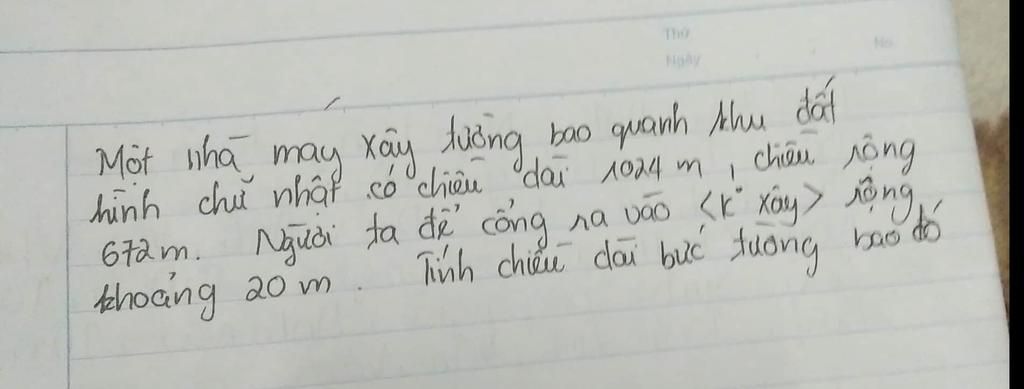 Thứ
No
Ngày
Một nhà máy xây tường bao quanh khu đất
hình chữ nhật có chiều dài 1024 m, chiều rộng
672m. Người ta để cổng ra vào <k° xây> rộng
khoảng 20 m. Tính chiều dài bức tường bao đó